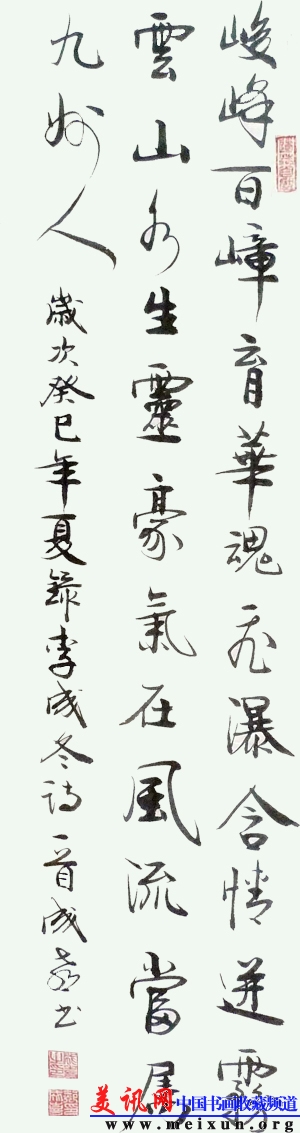 峻峰百嶂育華魂飛瀑含情迸霧
雲山水生靈豪氣在風流當屬
九州人
歲次癸巳年夏錄李成冬詩一首成書
美讯网
中国书画收藏频道
www.meixun.org